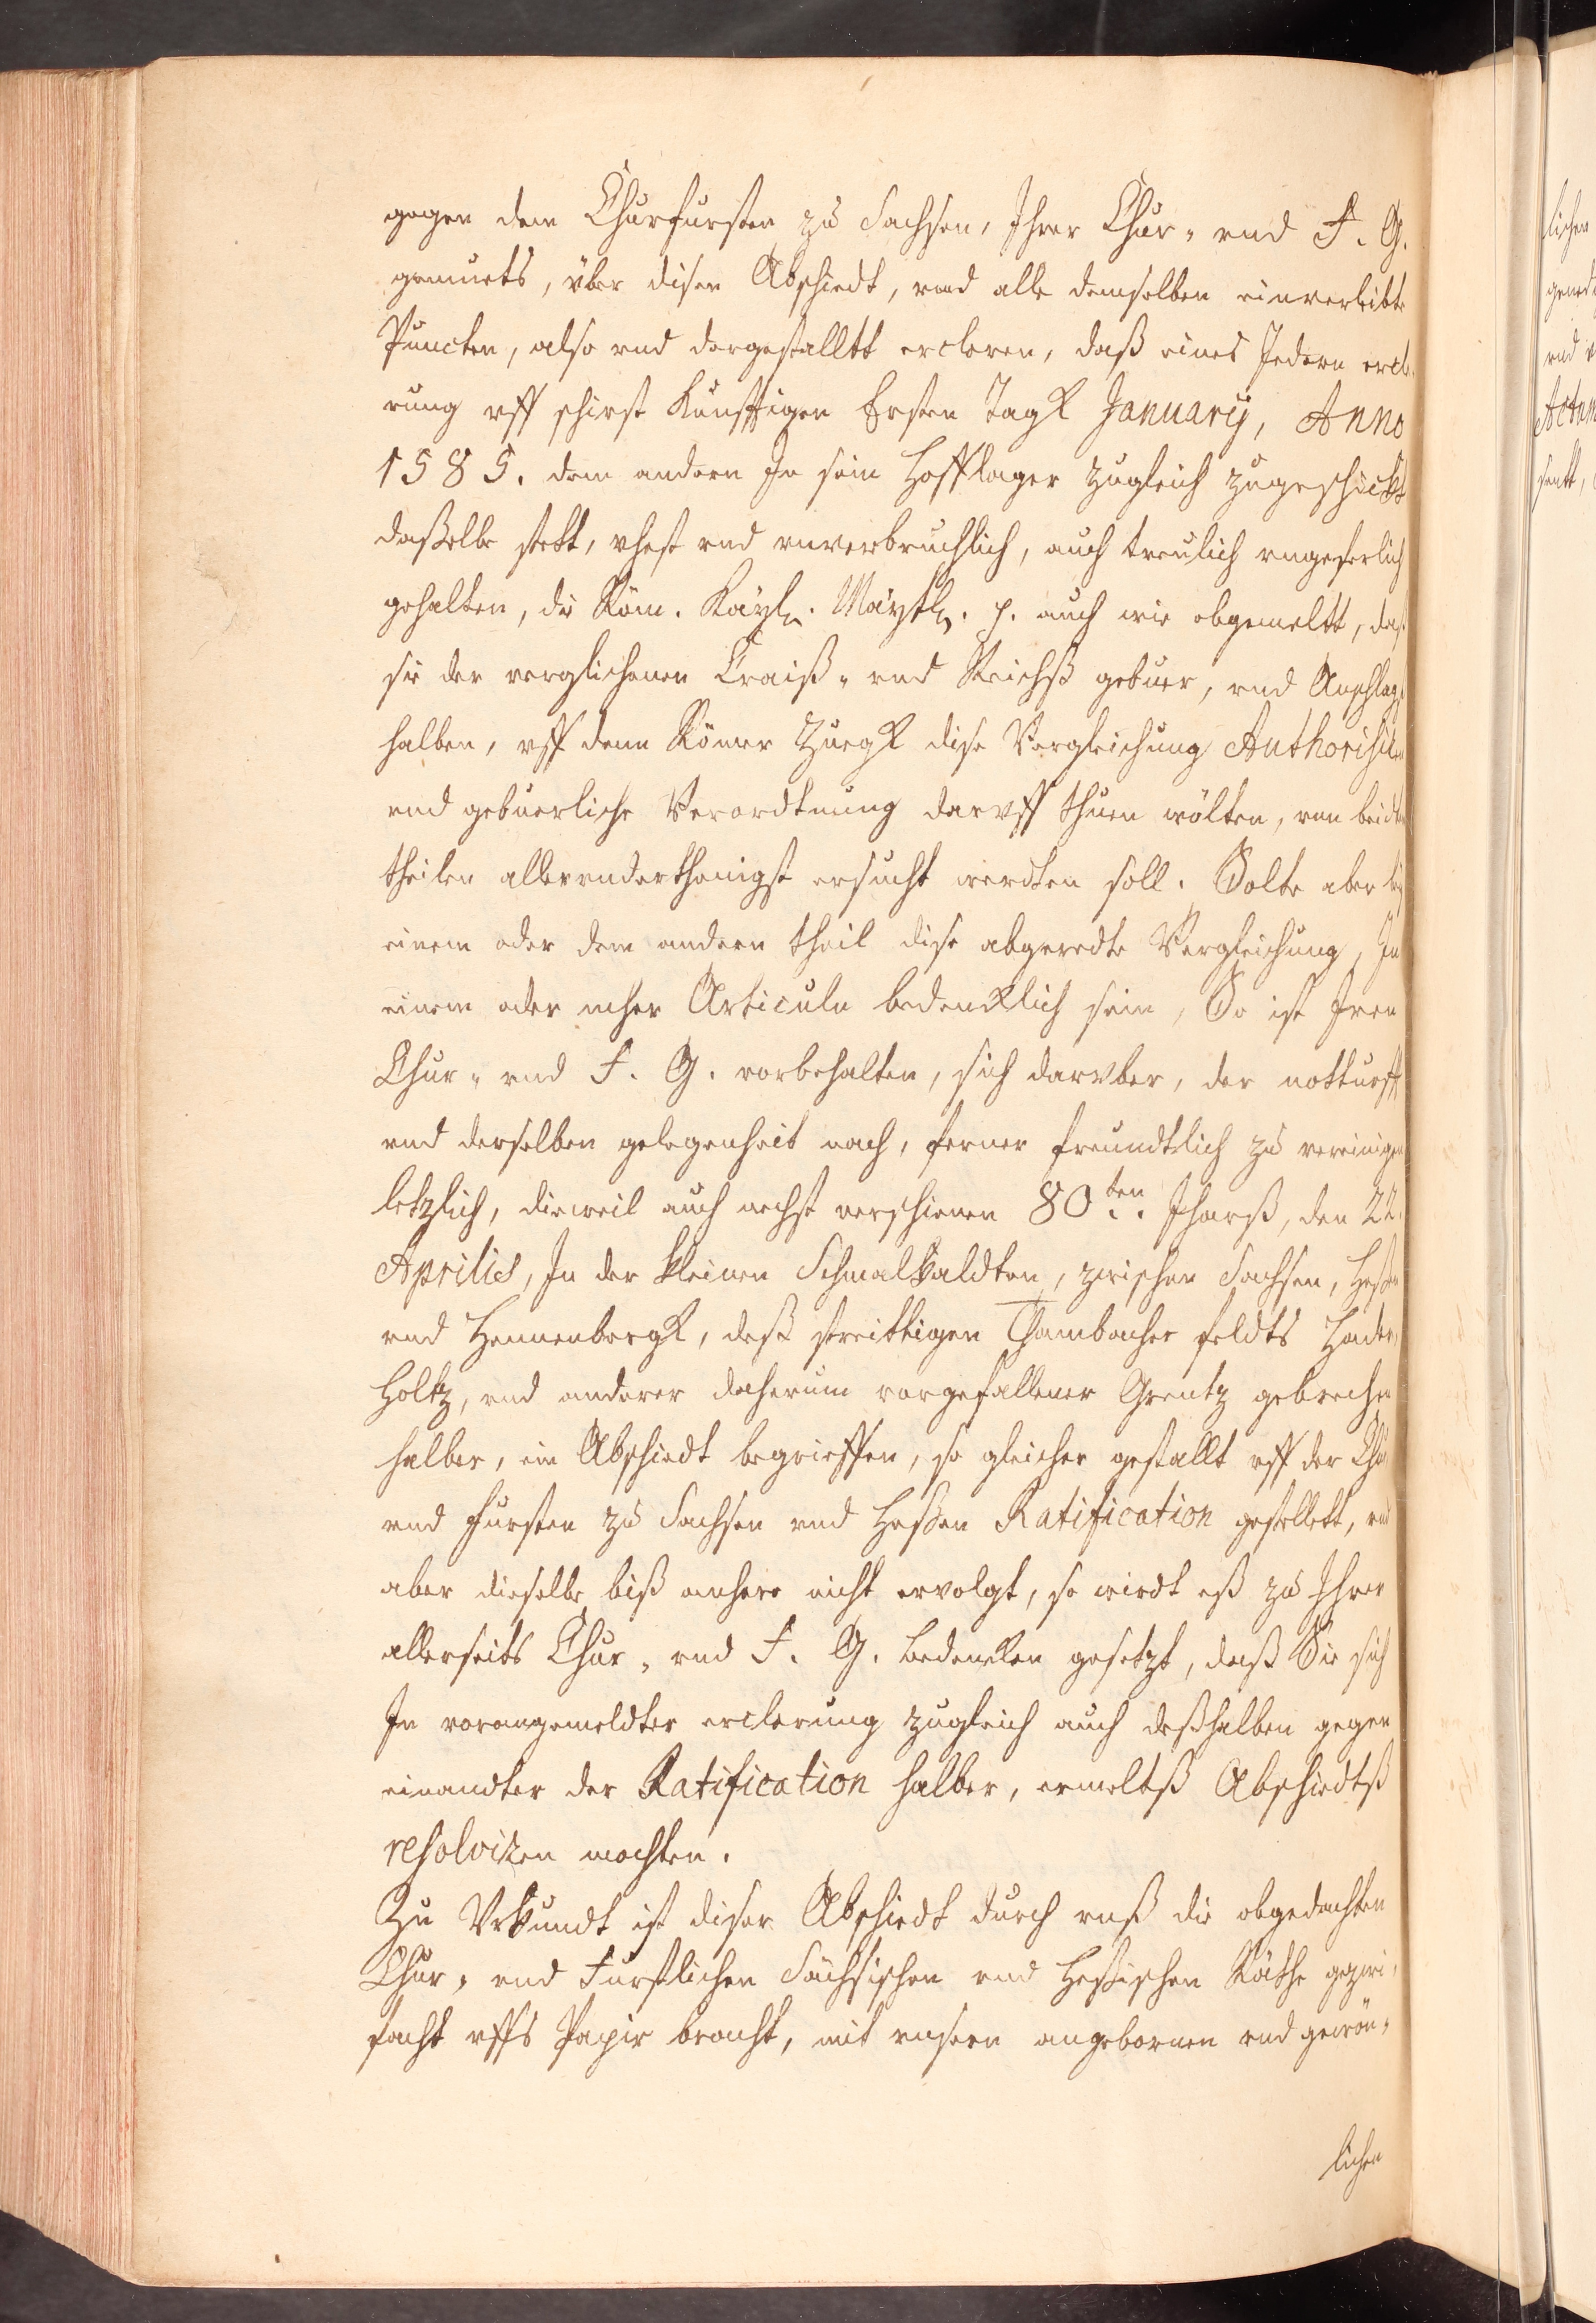 gegen dem Churfursten zu Sachsen, Ihrer Chur- vnd F. G.
gemuets, über disen Abschiedt, vnd alle demselben einverleibte
Puncten, also vnd dergestalltt ercleren, daß eines Jedern ercle-
rung vff schirst Kunfftigen Ersten Tagk January, Anno
1585. dem andern In sein Hofflager zugleich zugeschickt
daßelbe stett, vhest vnd vnverbruchlich, auch treulich vngeferlich
gehalten, die Röm. Kayl. Maytt. p. auch wie obgemeltt, daß
sie der verglichenen Craiß- vnd Reichß gebuer, vnd Anschlag
halben, vff denn Römer Zuegk dise Vergleichung Authorisirn
vnd gebuerliche Verordtnung darvff thuen wölten, von beidten
theilen allervnderthenigst ersucht werdten soll. Solte aber bey
einem oder dem andern theil dise abgeredte Vergleichung, In
einem oder mher Articuln bedencklich sein, So ist Iren
Chur- vnd F. G. vorbehalten, sich darvber, der notturfft
vnd derselben gelegenheit nach, ferner freundtlich zu vereinigen
letzlich, dieweil auch nechst verschienen 80ten. Jharß, den 22.
Aprilis, In der kleinen Schmalkaldten, zwischen Sachsen, Heßen
vnd Hennenbergk, deß streittigen Thambacher feldts Hader-
holtz, vnd anderer daherum vorgefallener Grentz gebrechen
halber, ein Abschiedt begrieffen, so gleicher gestallt vff der Chur
vnd Fursten zu Sachsen vnd Heßen Ratification gestellett, vnd
aber dieselbe biß anhero nicht ervolgt, so wirdt eß zu Ihrer
allerseits Chur- vnd F. G. bedencken gesetzt, daß Sie sich
In vorangemeldter erclerung zugleich auch deßhalben gegen
einandter der Ratification halber, ermeltß Abschiedtß
resolviren mochten.
Zu Vrkundt ist diser Abschiedt durch vnß die obgedachten
Chur- vnd Furstlichen Sächsischen vnd Heßischen Räthe gezwi-
facht vffs Papir bracht, mit vnsern angebornen vnd gewön-
lichen